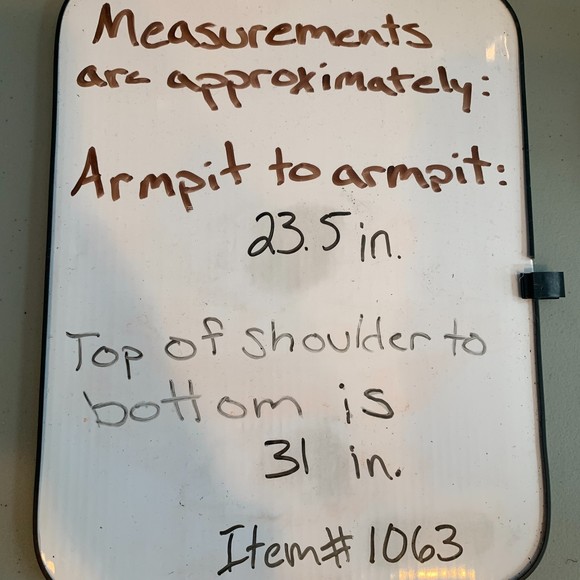 Measurements
are approximately:
Armpit to armpit:
23.5 in.
Top of shoulder to
bottom is
31 in.
Item# 1063